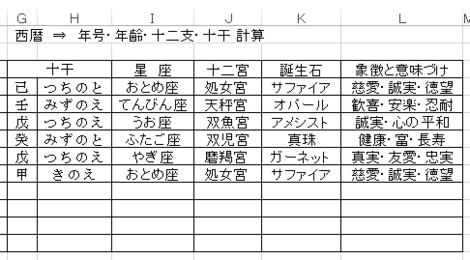 G H I J K L M
西暦 ⇒ 年号・年齢・十二支・十干 計算
十干 星 座 十二宮 誕生石 象徴と意味づけ
己 つちのと おとめ座 処女宮 サファイア 慈愛・誠実・徳望
壬 みずのえ てんびん座 天秤宮 オパール 歓喜・安楽・忍耐
戊 つちのえ うお座 双魚宮 アメシスト 誠実・心の平和
癸 みずのと ふたご座 双児宮 真珠 健康・富・長寿
戊 つちのえ やぎ座 磨羯宮 ガーネット 真実・友愛・忠実
甲 きのえ おとめ座 処女宮 サファイア 慈愛・誠実・徳望